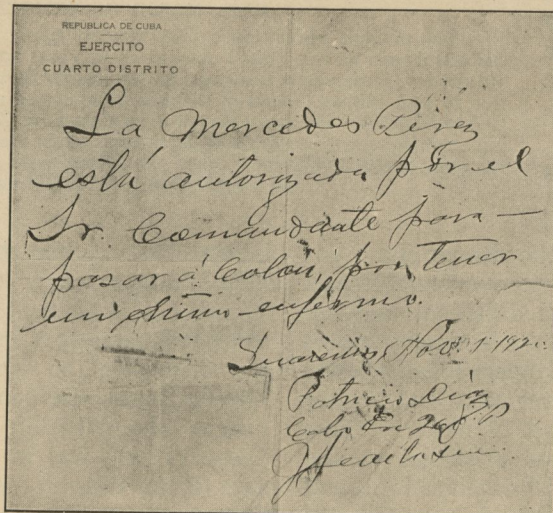 REPUBLICA DE CUBA
EJERCITO
CUARTO DISTRITO
La Mercedes Pérez
está autorizada por el
Sr. Comandante para—
pasar á Colon, por tener
un enfermo.
Nov. 1- 192
Patricio Díaz
Cabo